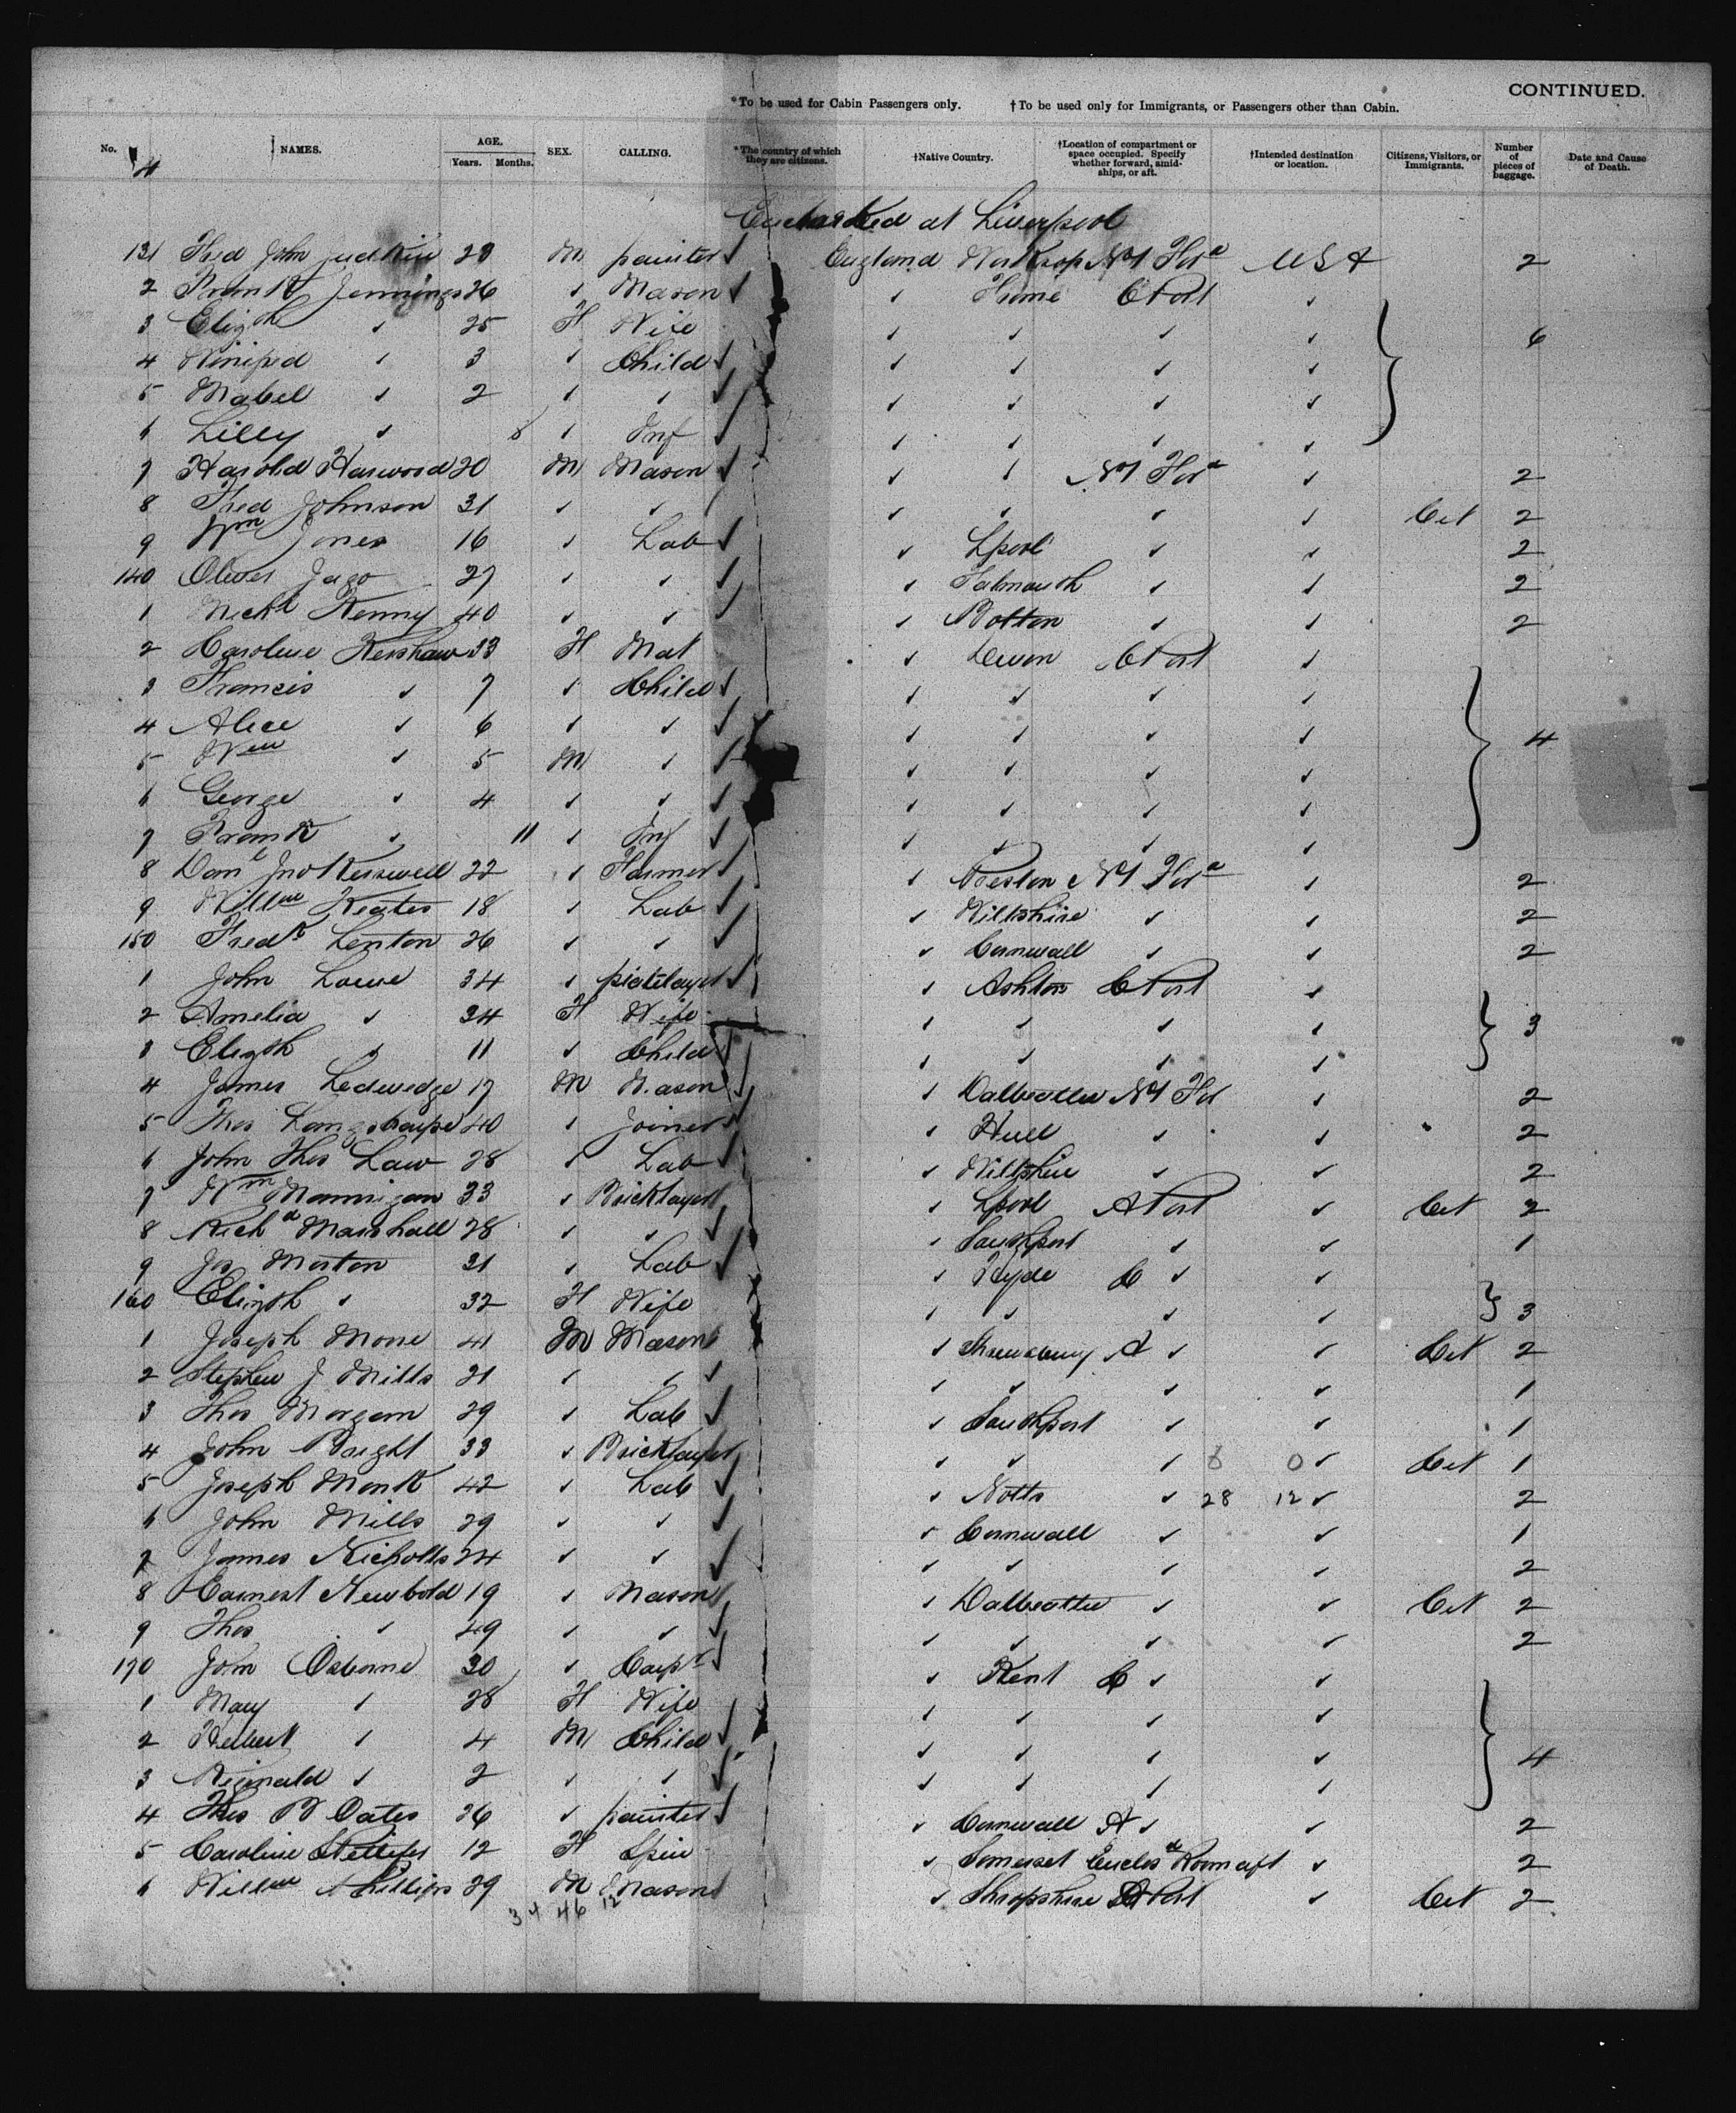 CONTINUED.
*To be used for Cabin Passengers only. †To be used only for Immigrants, or Passengers other than Cabin.
No. NAMES. AGE. Years. Months. SEX. CALLING. *The country of which they are citizens. †Native Country. †Location of compartment or space occupied. Specify whether forward, amidships, or aft. †Intended destination or location. Citizens, Visitors, or Immigrants. Number of pieces of baggage. Date and Cause of Death.
Embarked at Liverpool
131 Fred John 23 M painter ✓ England Worksop No 1 USA 2
2 Frank Jennings 26 ✓ Mason ✓ ✓ C Port ✓
3 Elizth ✓ 25 F Wife ✓ ✓ ✓ ✓ 6
4 Winifred ✓ 3 ✓ Child ✓ ✓ ✓ ✓ ✓
5 Mabel ✓ 2 ✓ ✓ ✓ ✓ ✓ ✓ ✓
6 Lilly ✓ 8 ✓ Inf ✓ ✓ ✓ ✓ ✓
7 Harold Harwood 20 M Mason ✓ ✓ ✓ No 1 ✓ 2
8 Fred Johnson 31 ✓ ✓ ✓ ✓ ✓ ✓ ✓ Cit 2
9 Wm Jones 16 ✓ Lab ✓ ✓ Lpool ✓ ✓ 2
140 Oliver Jago 27 ✓ ✓ ✓ ✓ Falmouth ✓ ✓ 2
1 Kenny 40 ✓ ✓ ✓ ✓ Bolton ✓ ✓ 2
2 Caroline Kershaw 33 F Mat ✓ Devon C Port ✓
3 Francis ✓ 7 ✓ Child ✓ ✓ ✓ ✓ ✓
4 Alice ✓ 6 ✓ ✓ ✓ ✓ ✓ ✓ ✓ 4
5 Wm ✓ 5 M ✓ ✓ ✓ ✓ ✓ ✓
6 George ✓ 4 ✓ ✓ ✓ ✓ ✓ ✓ ✓
7 Frank ✓ 11 ✓ Inf ✓ ✓ ✓ ✓ ✓
8 Danl Jno Kerswell 22 ✓ Farmer ✓ ✓ Preston No 1 ✓ 2
9 Willm Keates 18 ✓ Lab ✓ ✓ Wiltshire ✓ ✓ 2
150 Fredk Lenton 26 ✓ ✓ ✓ ✓ Cornwall ✓ ✓ 2
1 John Lowe 34 ✓ platelayer ✓ ✓ Ashton C Port ✓
2 Amelia ✓ 34 F Wife ✓ ✓ ✓ ✓ 3
3 Elizth ✓ 11 ✓ Child ✓ ✓ ✓ ✓ ✓
4 James Ledwedge 17 M Mason ✓ ✓ Dalbeattie No 1 ✓ 2
5 Thos 40 ✓ Joiner ✓ ✓ Hull ✓ ✓ 2
6 John Thos Law 28 ✓ Lab ✓ ✓ Wiltshire ✓ ✓ 2
7 Wm Mannigan 33 ✓ Bricklayer ✓ ✓ Lpool A Port ✓ Cit 2
8 Richd Marshall 28 ✓ ✓ ✓ ✓ Southport ✓ ✓ 1
9 Jas Morton 31 ✓ Lab ✓ ✓ Hyde C ✓ ✓
160 Elizth ✓ 32 F Wife ✓ ✓ ✓ ✓ 3
1 Joseph 41 M Mason ✓ ✓ Shrewsbury A ✓ ✓ Cit 2
2 Stephen J Mills 21 ✓ ✓ ✓ ✓ ✓ ✓ ✓ 1
3 Thos Morgan 29 ✓ Lab ✓ ✓ Southport ✓ ✓ 1
4 John Bright 33 ✓ Bricklayer ✓ ✓ ✓ ✓ 6 0 ✓ Cit 1
5 Joseph Monk 42 ✓ Lab ✓ ✓ Notts ✓ 28 12 ✓ 2
6 John Mills 29 ✓ ✓ ✓ ✓ Cornwall ✓ ✓ 1
7 James Nicholls 24 ✓ ✓ ✓ ✓ ✓ ✓ ✓ 2
8 Earnest Newbold 19 ✓ Mason ✓ ✓ Dalbeattie ✓ ✓ Cit 2
9 Thos ✓ 49 ✓ ✓ ✓ ✓ ✓ ✓ ✓ 2
170 John Osborne 30 ✓ Carpr ✓ ✓ Kent C ✓ ✓
1 Mary ✓ 28 F Wife ✓ ✓ ✓ ✓
2 Herbert ✓ 4 M Child ✓ ✓ ✓ ✓ ✓ 4
3 Reginald ✓ 2 ✓ ✓ ✓ ✓ ✓ ✓ ✓
4 Thos Oates 26 ✓ painter ✓ ✓ Cornwall A ✓ ✓ 2
5 Caroline 12 F Spin ✓ Somerset Enclosd Room aft ✓ 2
6 Willm Phillips 29 M Mason ✓ ✓ Shropshire A Port ✓ Cit 2
34 46 12